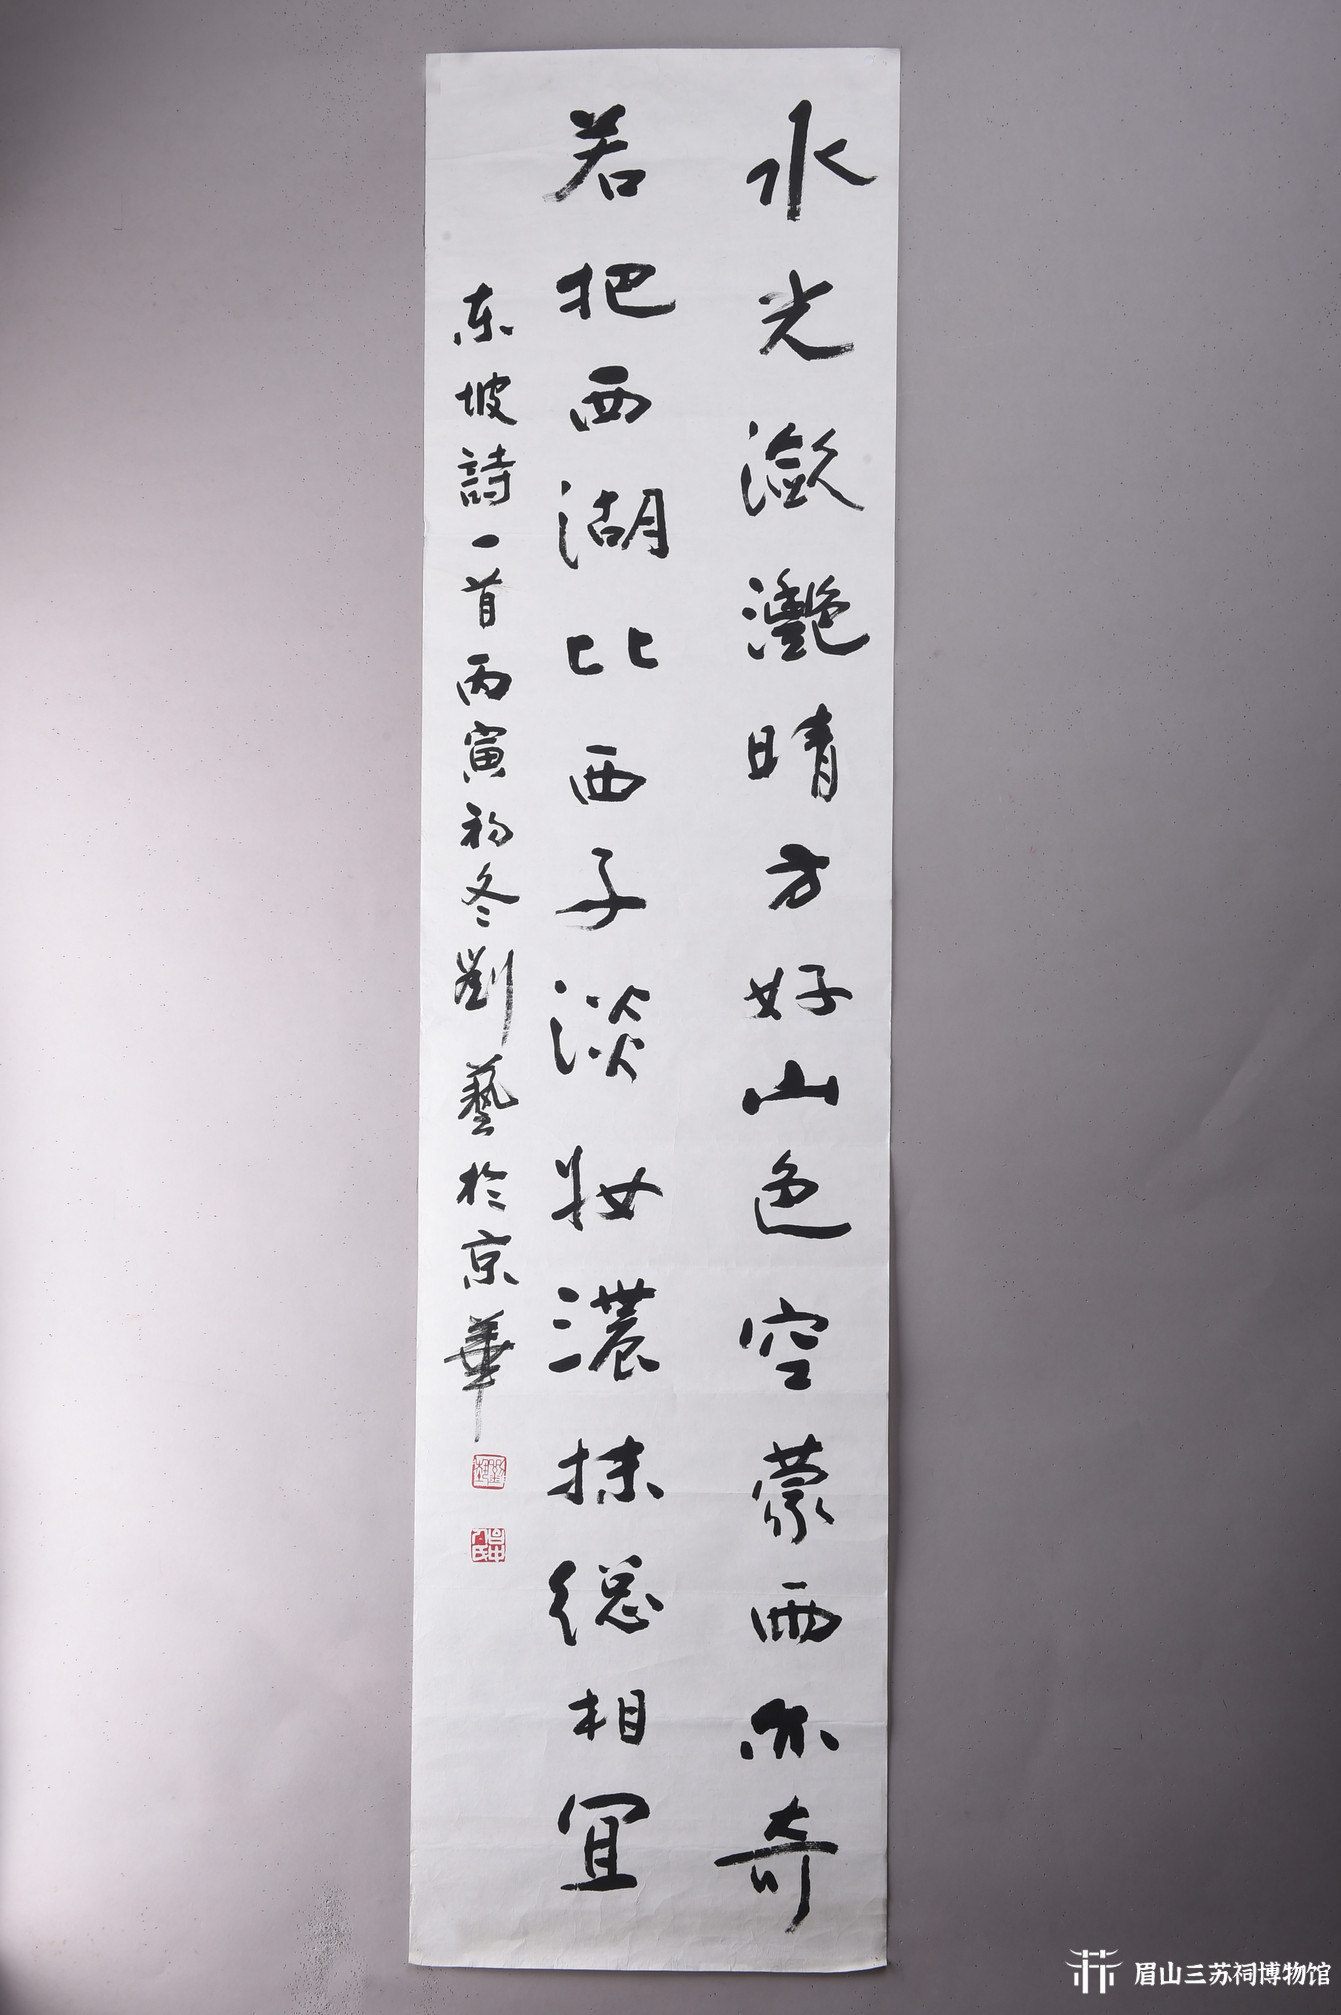 水光潋灔晴方好山色空蒙雨亦奇
若把西湖比西子淡妆濃抹総相宜
东坡詩一首丙寅初冬劉藝於京華
眉山三苏祠博物馆